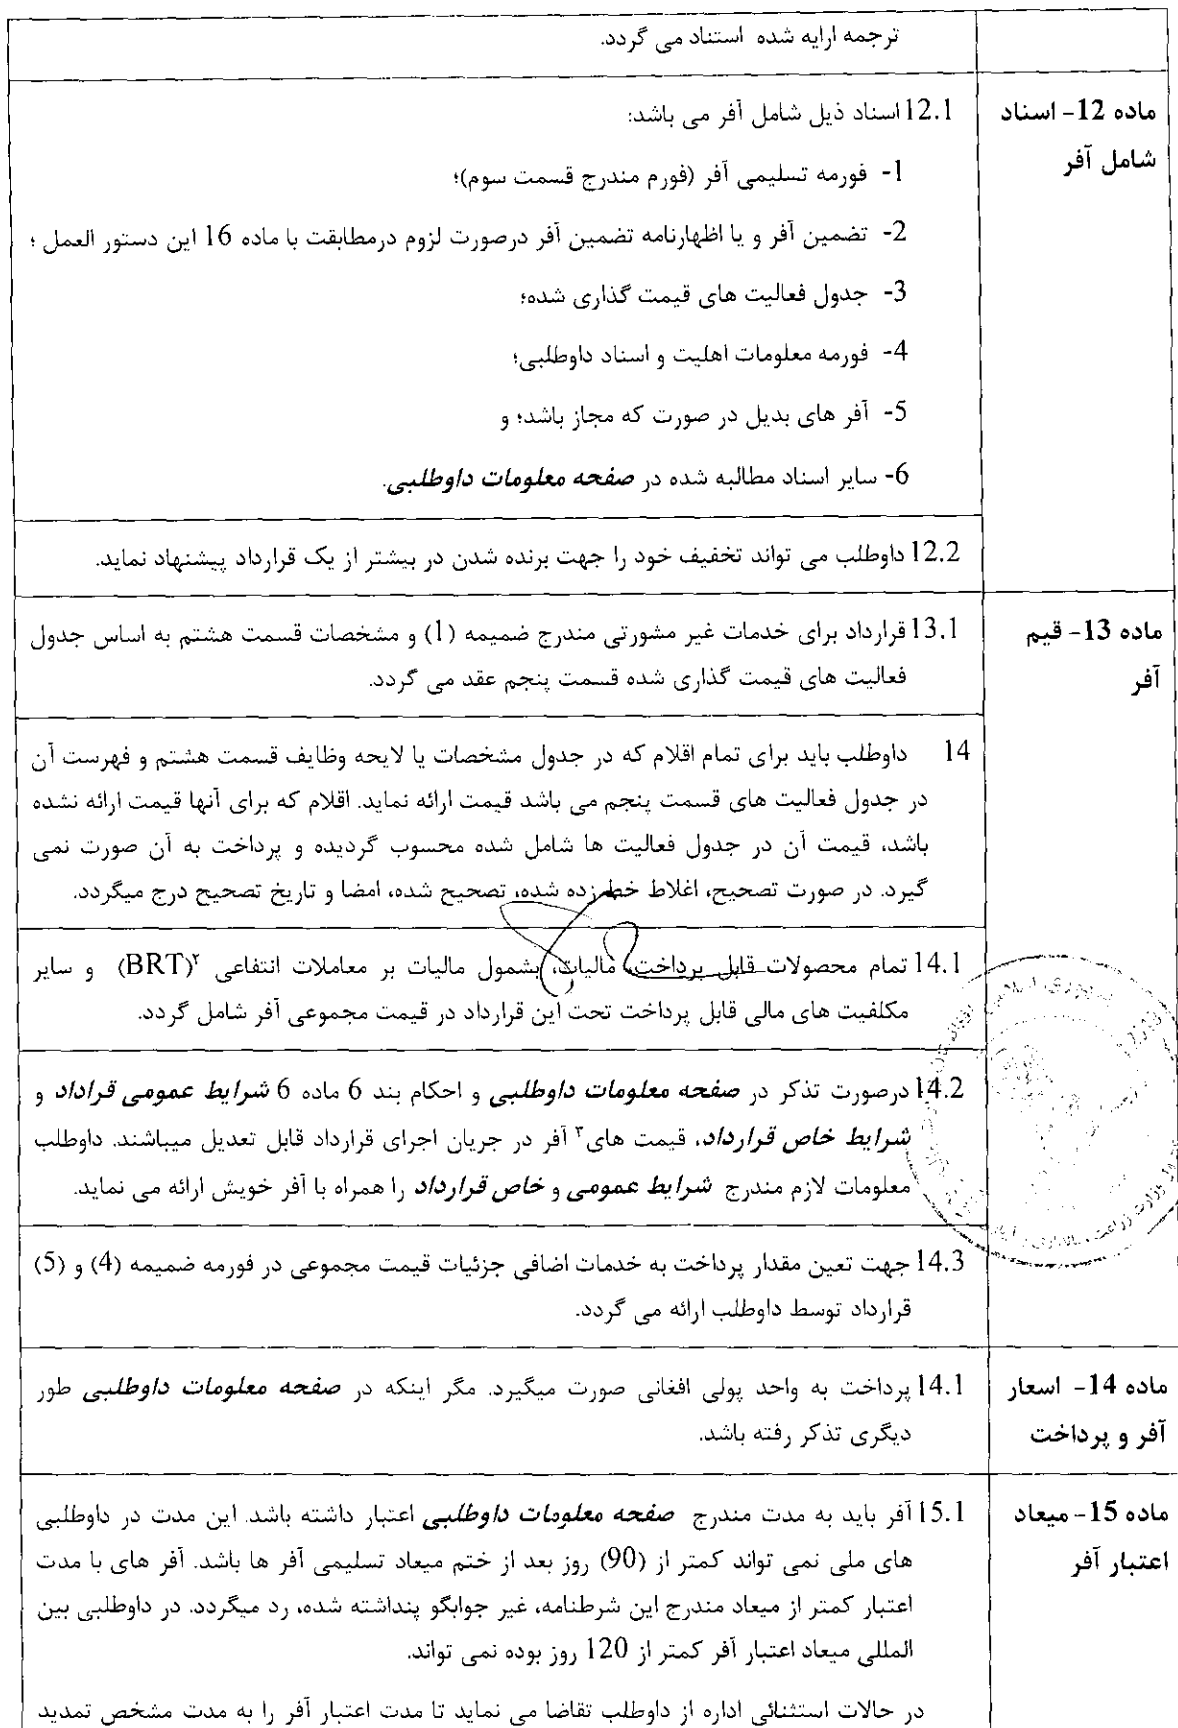 ترجمه ارایه شده استناد می گردد.
ماده 12- اسناد
شامل آفر
12.1 اسناد ذیل شامل آفر می باشد:
1- فورمه تسلیمی آفر (فورم مندرج قسمت سوم)؛
2- تضمین آفر و یا اظهارنامه تضمین آفر درصورت لزوم درمطابقت با ماده 16 این دستور العمل ؛
3- جدول فعالیت های قیمت گذاری شده؛
4- فورمه معلومات اهلیت و اسناد داوطلبی؛
5- آفر های بدیل در صورت که مجاز باشد؛ و
6- سایر اسناد مطالبه شده در صفحه معلومات داوطلبی.
12.2 داوطلب می تواند تخفیف خود را جهت برنده شدن در بیشتر از یک قرارداد پیشنهاد نماید.
ماده 13- قیم
آفر
13.1 قرارداد برای خدمات غیر مشورتی مندرج ضمیمه (1) و مشخصات قسمت هشتم به اساس جدول
فعالیت های قیمت گذاری شده قسمت پنجم عقد می گردد.
14 داوطلب باید برای تمام اقلام که در جدول مشخصات یا لایحه وظایف قسمت هشتم و فهرست آن
در جدول فعالیت های قسمت پنجم می باشد قیمت ارائه نماید. اقلام که برای آنها قیمت ارائه نشده
باشد، قیمت آن در جدول فعالیت ها شامل شده محسوب گردیده و پرداخت به آن صورت نمی
گیرد. در صورت تصحیح، اغلاط خط زده شده، تصحیح شده، امضا و تاریخ تصحیح درج میگردد.
14.1 تمام محصولات قابل پرداخت، مالیات، بشمول مالیات بر معاملات انتفاعی ۲(BRT) و سایر
مکلفیت های مالی قابل پرداخت تحت این قرارداد در قیمت مجموعی آفر شامل گردد.
14.2 درصورت تذکر در صفحه معلومات داوطلبی و احکام بند 6 ماده 6 شرایط عمومی قراداد و
شرایط خاص قرارداد، قیمت های۳ آفر در جریان اجرای قرارداد قابل تعدیل میباشند. داوطلب
معلومات لازم مندرج شرایط عمومی و خاص قرارداد را همراه با آفر خویش ارائه می نماید.
14.3 جهت تعین مقدار پرداخت به خدمات اضافی جزئیات قیمت مجموعی در فورمه ضمیمه (4) و (5)
قرارداد توسط داوطلب ارائه می گردد.
ماده 14- اسعار
آفر و پرداخت
14.1 پرداخت به واحد پولی افغانی صورت میگیرد. مگر اینکه در صفحه معلومات داوطلبی طور
دیگری تذکر رفته باشد.
ماده 15- میعاد
اعتبار آفر
15.1 آفر باید به مدت مندرج صفحه معلومات داوطلبی اعتبار داشته باشد. این مدت در داوطلبی
های ملی نمی تواند کمتر از (90) روز بعد از ختم میعاد تسلیمی آفر ها باشد. آفر های با مدت
اعتبار کمتر از میعاد مندرج این شرطنامه، غیر جوابگو پنداشته شده، رد میگردد. در داوطلبی بین
المللی میعاد اعتبار آفر کمتر از 120 روز بوده نمی تواند.
در حالات استثنائی اداره از داوطلب تقاضا می نماید تا مدت اعتبار آفر را به مدت مشخص تمدید